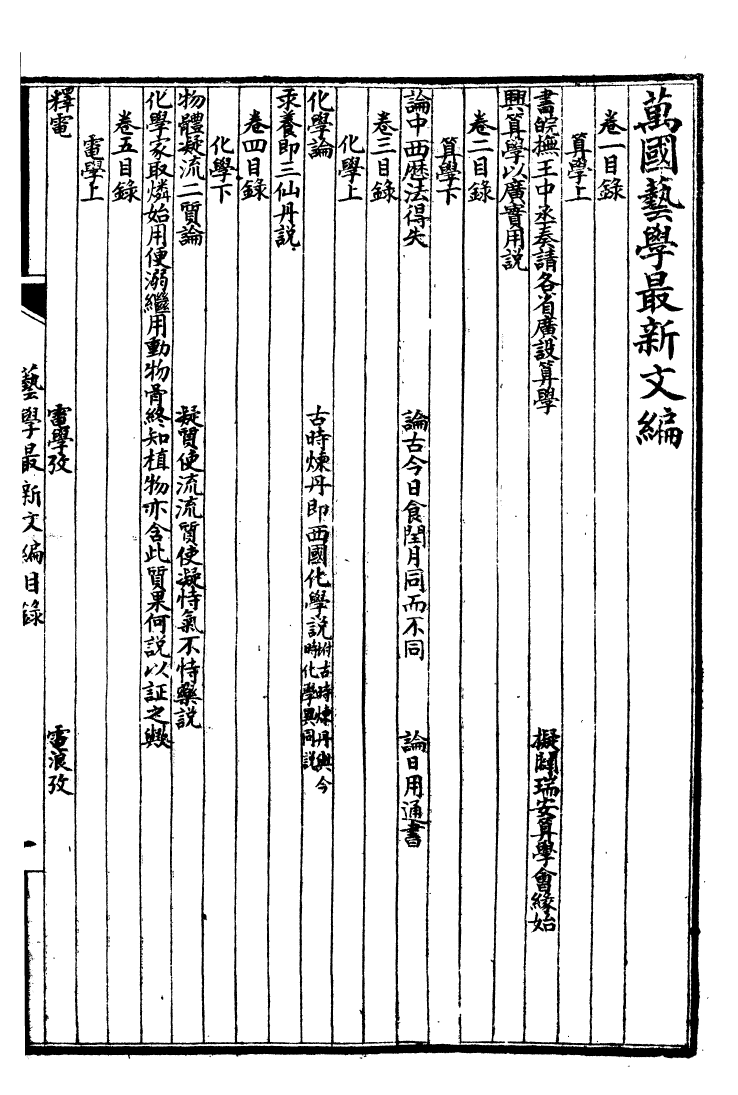 萬國藝學最新文編
卷一目錄
算學上
書皖撫王中丞奏請各省廣設算學　擬開瑞安算學會緣始
興算學以廣實用説
卷二目錄
算學下
論中西歴法得失　論古今日食閏月同而不同　論日用通書
卷三目錄
化學上
化學論　古時煉丹即西國化學説附古時煉丹與今時化學異同説
汞養即三仙丹説
卷四目錄
化學下
物體凝流二質論　凝質使流流質使凝恃氣不恃藥説
化學家取燐始用便溺繼用動物骨終知植物亦含此質果何説以証之歟
卷五目錄
電學上
釋電　電學攷　電浪攷
藝學最新文編目錄